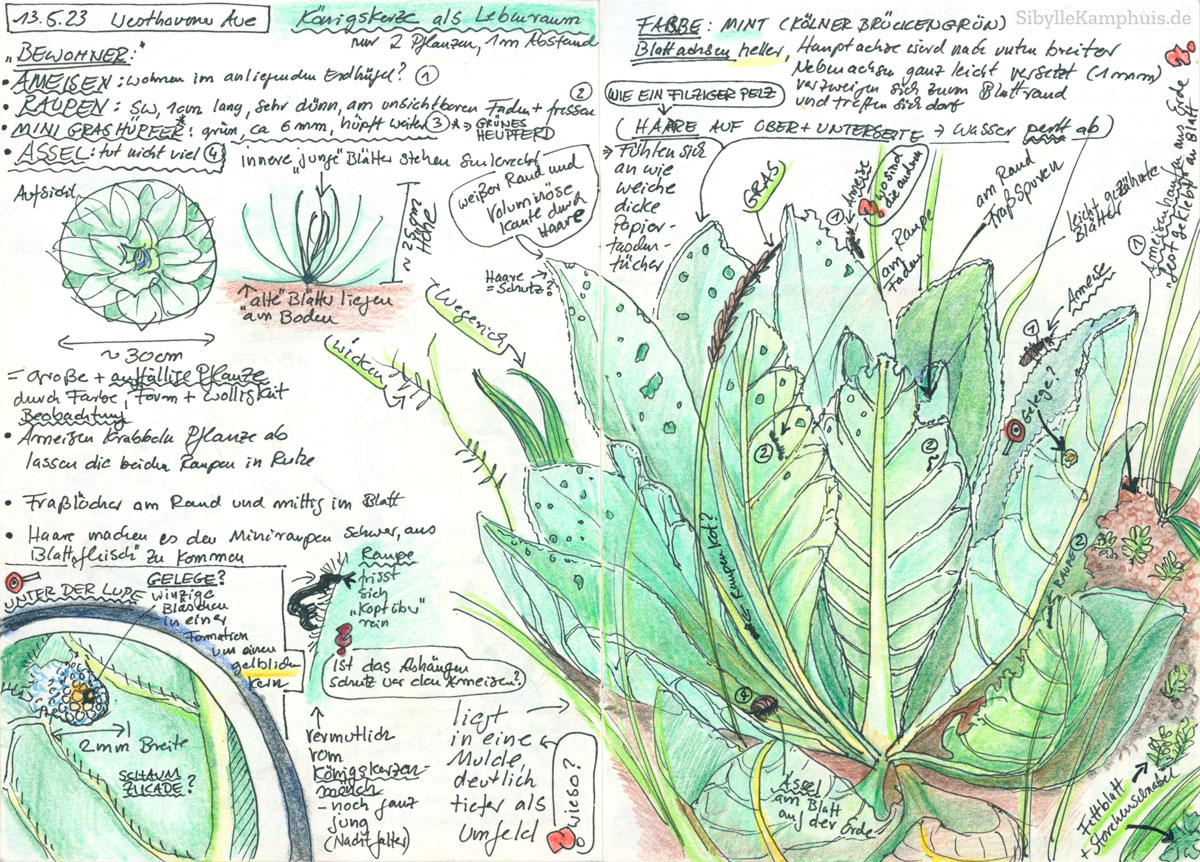 13.5.23 Westhovener Aue
Königskerze als Lebensraum
nur 2 Pflanzen, 1m Abstand
„BEWOHNER:"
• AMEISEN: wohnen im anliegenden Erdhügel? ①
• RAUPEN: sw, 1cm lang, sehr dünn, am unsichtbaren Faden + fressen ②
• MINI GRASHÜPFER*: grün, ca 6mm, hüpft weiter ③ *→ GRÜNES
HEUPFERD
• ASSEL: tut nicht viel ④
innere „junge" Blätter stehen senkrecht
Aufsicht
~ 25cm
Höhe
"alte" Blätter liegen
am Boden
~ 30cm
= große + auffällige Pflanze
durch Farbe, Form + Wolligkeit
Beobachtung
• Ameisen krabbeln Pflanze ab
lassen die beiden Raupen in Ruhe
• Fraßlöcher am Rand und mittig im Blatt
• Haare machen es den Miniraupen schwer, ans
Blatt„fleisch" zu kommen
UNTER DER LUPE
GELEGE?
winzige
Bläschen
in einer
Formation
um einen
gelblichen
Kern
2mm Breite
SCHAUM
ZIKADE?
Raupe
frisst
sich
„Kopfüber"
rein
Ist das Abhängen
Schutz vor den Ameisen?
Vermutlich
vom
Königskerzen-
mönch
- noch ganz
jung
(Nachtfalter)
liegt
in eine
Mulde,
deutlich
tiefer als
Umfeld
Wieso?
weißer Rand und
Voluminöse
Kante durch
Haare
Haare
= Schutz?
Wegerich
Wicken
FARBE: MINT (KÖLNER BRÜCKENGRÜN)
SibylleKamphuis.de
Blattachsen heller, Hauptachse wird nach unten breiter
Nebenachsen ganz leicht versetzt (1mm)
verzweigen sich zum Blattrand
und treffen sich dort
WIE EIN FILZIGER PELZ
(HAARE AUF OBER + UNTERSEITE → Wasser perlt ab)
→ Fühlen sich
an wie
weiche
dicke
Papier-
taschen-
tücher
GRAS
① Ameise
wo sind
die anderen
② Raupe
am
Faden
am Rand
Fraßspuren
leicht gezähnte
Blätter
① Ameisenhaufen aus Erde
„fest geklebt" an Blatt
① Ameise
Gelege?
②
②
← Raupenkot?
② RAUPE
④
Assel
am Blatt
auf der Erde
Fettblatt
+ Storchenschnabel